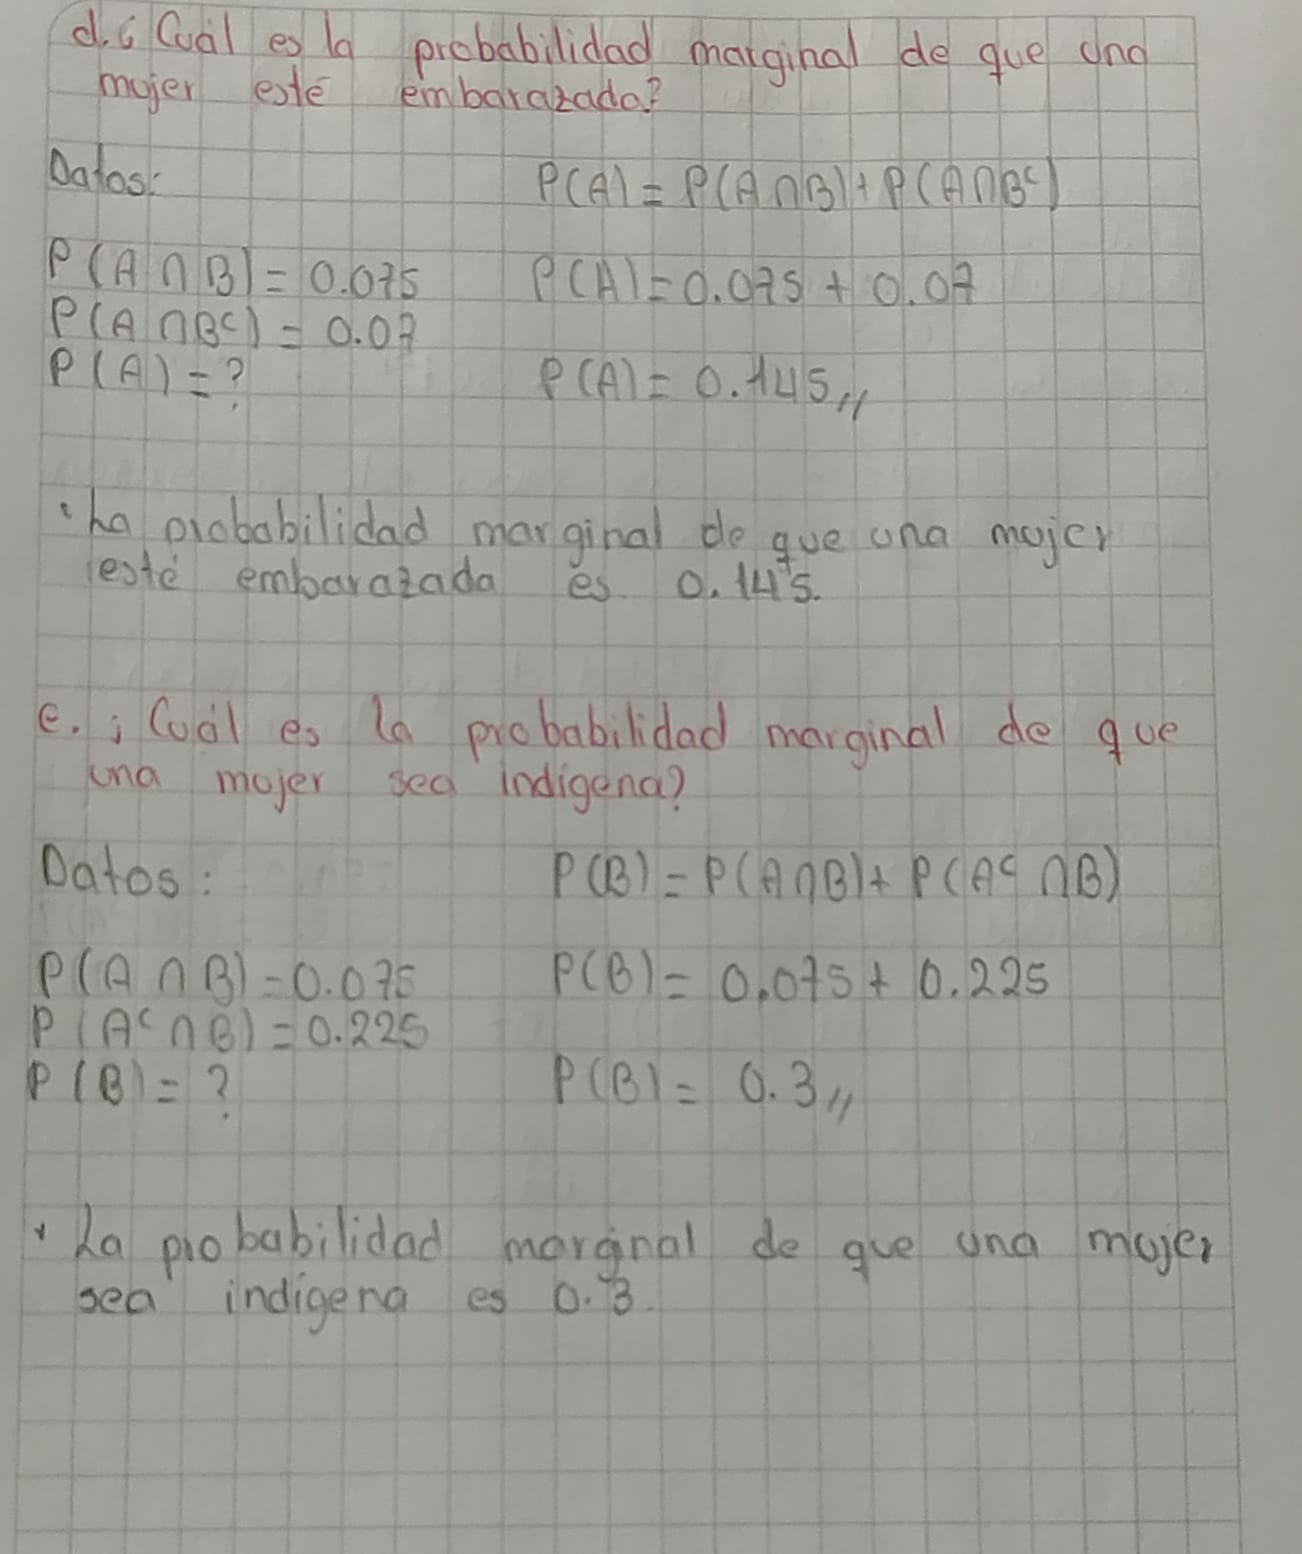 d. ¿Cuál es la probabilidad marginal de que una
mujer esté embarazada?
Datos:
P(A) = P(A∩B) + P(A∩Bᶜ)
P(A∩B) = 0.075
P(A) = 0.075 + 0.07
P(A∩Bᶜ) = 0.07
P(A) = ?
P(A) = 0.145,,
· La probabilidad marginal de que una mujer
esté embarazada es 0.145.
e. ¿Cuál es la probabilidad marginal de que
una mujer sea indígena?
Datos:
P(B) = P(A∩B) + P(Aᶜ∩B)
P(A∩B) = 0.075
P(B) = 0.075 + 0.225
P(Aᶜ∩B) = 0.225
P(B) = ?
P(B) = 0.3,,
· La probabilidad marginal de que una mujer
sea indígena es 0.3.